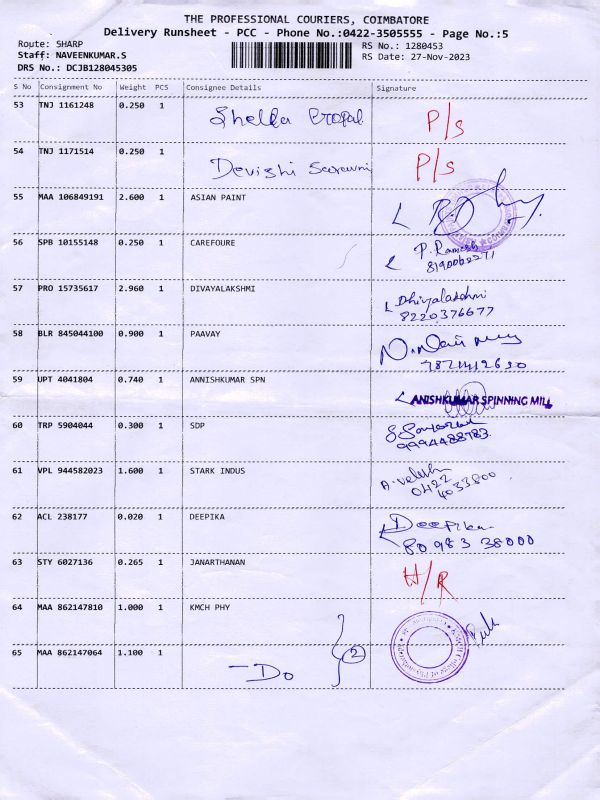 THE PROFESSIONAL COURIERS, COIMBATORE
Delivery Runsheet - PCC - Phone No.:0422-3505555 - Page No.:5
Route: SHARP
Staff: NAVEENKUMAR.S
DRS No.: DCJB128045305
RS No.: 1280453
RS Date: 27-Nov-2023
S No Consignment No Weight PCS Consignee Details Signature
53 TNJ 1161248 0.250 1 P/s
54 TNJ 1171514 0.250 1 Devishi P/s
55 MAA 106849191 2.600 1 ASIAN PAINT
56 SPB 10155148 0.250 1 CAREFOURE P. Ramesh
57 PRO 15735617 2.960 1 DIVAYALAKSHMI Dhivyalakshmi
8220376677
58 BLR 845044100 0.900 1 PAAVAY
59 UPT 4041804 0.740 1 ANNISHKUMAR SPN ANISHKUMAR SPINNING MILL
60 TRP 5904044 0.300 1 SDP
9994488783
61 VPL 944582023 1.600 1 STARK INDUS A. Velush
0422
4033800
62 ACL 238177 0.020 1 DEEPIKA Deepika
80 983 38000
63 STY 6027136 0.265 1 JANARTHANAN H/R
64 MAA 862147810 1.000 1 KMCH PHY
2
65 MAA 862147064 1.100 1 - Do